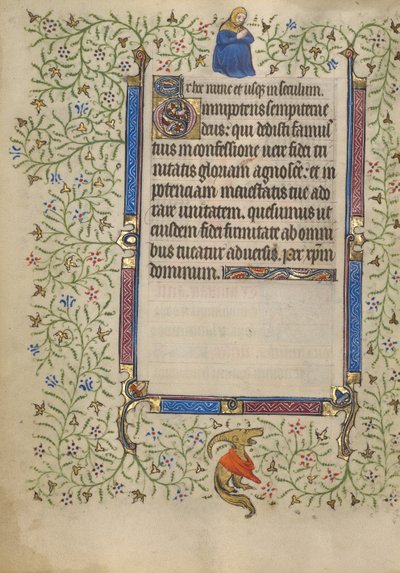 Ex hoc nunc et usq; in seculum.
Omnipotens sempiterne
deus: qui dedisti famul
tuis in confessione uere fidei tri
nitatis gloriam agnosce: et in
potencia maiestatis tue ado
rare unitatem. quesumus ut
eiusdem fidei firmitate ab omni
bus tueatur aduersis. per xpm
dominum.